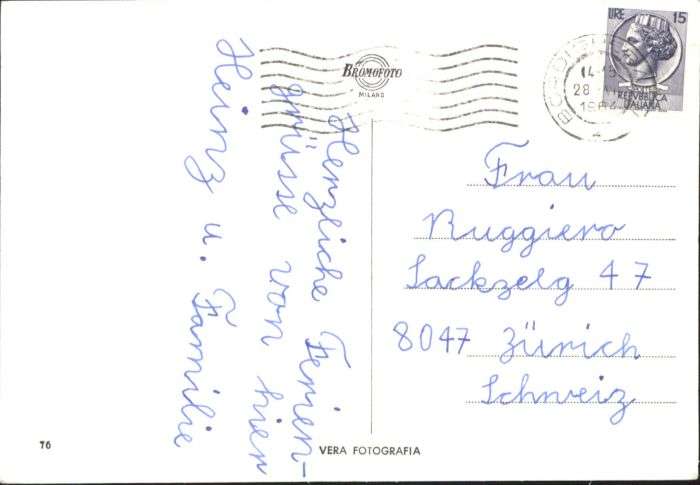 LIRE 15
REPVBBLICA
ITALIANA
BROMOFOTO
MILANO
Herzliche Ferien-
grüsse von hier
Heinz u. Familie
Frau
Ruggiero
Sackzelg 47
8047 Zürich
Schweiz
76
VERA FOTOGRAFIA